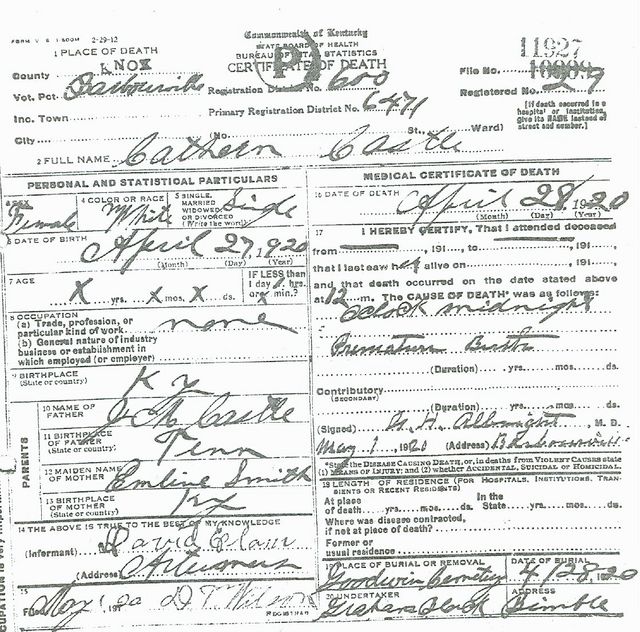 FORM V. S. 1 2-29-12
Commonwealth of Kentucky
STATE BOARD OF HEALTH
BUREAU OF VITAL STATISTICS
CERTIFICATE OF DEATH
1 PLACE OF DEATH
County KNOX
Vot. Pct Barbourville
Inc. Town
City (No. St., Ward)
Registration District No. 600
Primary Registration District No. 6471
11927
File No.
Registered No. 29
[If death occurred in a hospital or institution, give its NAME instead of street and number.]
2 FULL NAME Cathern Castle
PERSONAL AND STATISTICAL PARTICULARS
3 SEX Female
4 COLOR OR RACE White
5 SINGLE, MARRIED WIDOWED OR DIVORCED (Write the word) Single
6 DATE OF BIRTH April 27, 1920
(Month) (Day) (Year)
7 AGE X yrs. X mos. X ds.
IF LESS than 1 day hrs. or X min.?
8 OCCUPATION none
(a) Trade, profession, or particular kind of work
(b) General nature of industry business or establishment in which employed (or employer)
9 BIRTHPLACE (State or country) Ky
PARENTS
10 NAME OF FATHER J M Castle
11 BIRTHPLACE OF FATHER (State or country) Tenn
12 MAIDEN NAME OF MOTHER Emline Smith
13 BIRTHPLACE OF MOTHER (State or country) Ky
14 THE ABOVE IS TRUE TO THE BEST OF MY KNOWLEDGE
(Informant) David Elam
(Address) Artemus
15
Filed May 1 1920 D. T. Wilson
REGISTRAR
MEDICAL CERTIFICATE OF DEATH
16 DATE OF DEATH April 28, 1920
(Month) (Day) (Year)
17 I HEREBY CERTIFY, That I attended deceased
from , 191 , to , 191 ,
that I last saw her alive on , 191 ,
and that death occurred on the date stated above
at 12 m. The CAUSE OF DEATH* was as follows:
o'clock midnight
Premature Birth
(Duration) yrs. mos. ds.
Contributory
(SECONDARY)
(Duration) yrs. mos. ds.
(Signed) Albright, M. D.
May 1, 1920 (Address) Barbourville
*State the DISEASE CAUSING DEATH, or, in deaths from VIOLENT CAUSES state (1) MEANS OF INJURY; and (2) whether ACCIDENTAL, SUICIDAL or HOMICIDAL.
18 LENGTH OF RESIDENCE (FOR HOSPITALS, INSTITUTIONS, TRANSIENTS OR RECENT RESIDENTS)
At place of death yrs. mos. ds. In the State yrs. mos. ds.
Where was disease contracted, if not at place of death?
Former or usual residence
19 PLACE OF BURIAL OR REMOVAL Goodwin Cemetery
DATE OF BURIAL 4/28 1920
20 UNDERTAKER
ADDRESS